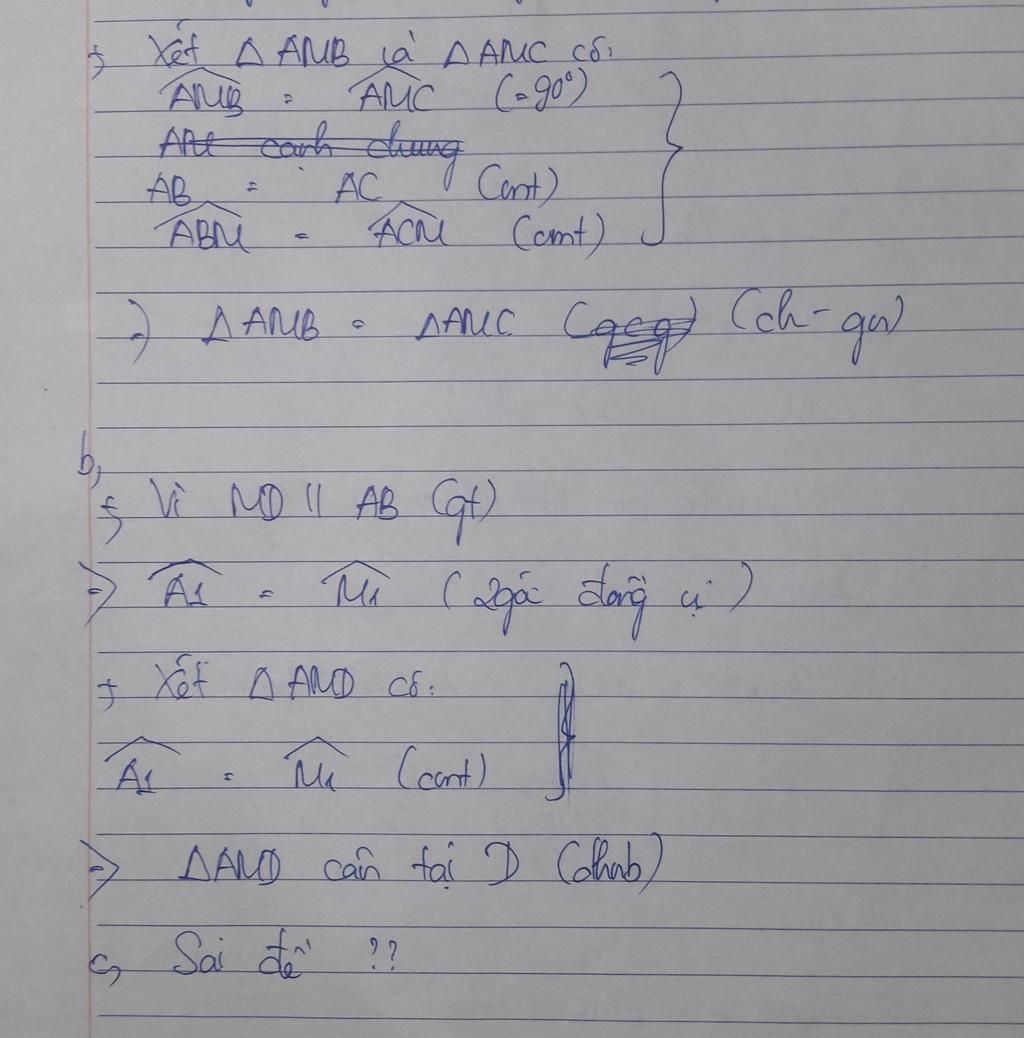 +, Xét Δ AMB và Δ AMC có:
AMB = AMC (=90°)
AM cạnh chung
AB = AC (cmt)
ABM = ACM (cmt)
=> Δ AMB = Δ AMC (gcg) (ch-gn)
b,
+, Vì MD // AB (gt)
=> A1 = M1 (2 góc đồng vị)
+ Xét Δ AMD có:
A1 = M1 (cmt)
=> Δ AMD cân tại D (dhnb)
c, Sai đề ??